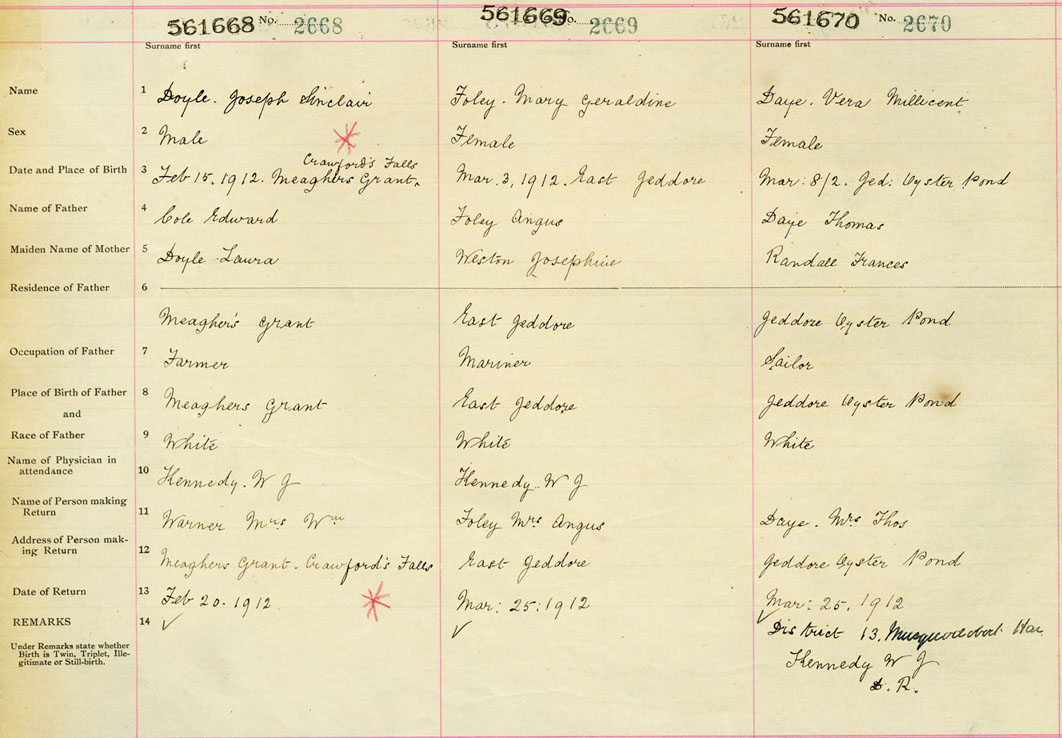 561668 No. 2668 561669 No. 2669 561670 No. 2670
Surname first Surname first Surname first
Name 1 Doyle. Joseph Sinclair Foley. Mary Geraldine Daye. Vera Millicent
Sex 2 Male Female Female
Crawford's Falls
Date and Place of Birth 3 Feb 15. 1912. Meaghers Grant. Mar. 3, 1912. East Jeddore Mar: 8/2. Jed: Oyster Pond
Name of Father 4 Cole Edward Foley Angus Daye Thomas
Maiden Name of Mother 5 Doyle Laura Weston Josephine Randall Frances
Residence of Father 6
Meagher's Grant East Jeddore Jeddore Oyster Pond
Occupation of Father 7 Farmer Mariner Sailor
Place of Birth of Father 8 Meaghers Grant East Jeddore Jeddore Oyster Pond
and
Race of Father 9 White White White
Name of Physician in
attendance 10 Kennedy. W J Kennedy. W J
Name of Person making
Return 11 Warner Mrs Wm Foley Mrs Angus Daye. Mrs Thos
Address of Person mak-
ing Return 12 Meaghers Grant. Crawford's Falls East Jeddore Jeddore Oyster Pond
Date of Return 13 Feb 20. 1912 Mar: 25: 1912 Mar: 25. 1912
REMARKS 14 ✓ ✓ ✓ District 13. Har
Under Remarks state whether
Birth is Twin, Triplet, Ille-
gitimate or Still-birth.
Kennedy W J
D. R.